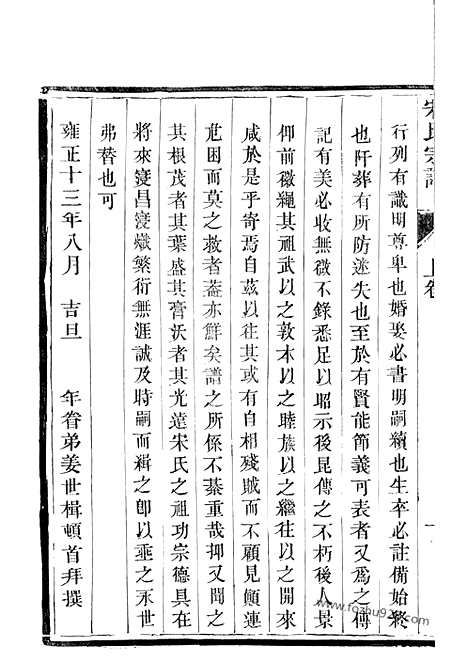 宋氏宗譜
上卷
行列有識明尊卑也婚娶必書明嗣續也生卒必註備始終
也阡葬有所防迷失也至於有賢能節義可表者又爲之傳
記有美必收無微不錄悉足以昭示後昆傳之不朽後人景
仰前徽繩其祖武以之敦本以之睦族以之繼往以之開來
咸於是乎寄焉自茲以往其或有自相殘賊而不顧見顛連
危困而莫之救者蓋亦鮮矣譜之所係不綦重哉抑又聞之
其根茂者其葉盛其膏沃者其光遠宋氏之祖功宗德具在
將來寖昌寖熾繁衍無涯誠及時嗣而緝之卽以垂之永世
弗替也可
雍正十三年八月 吉旦 年眷弟姜世楫頓首拜撰
www.fozhu920.com